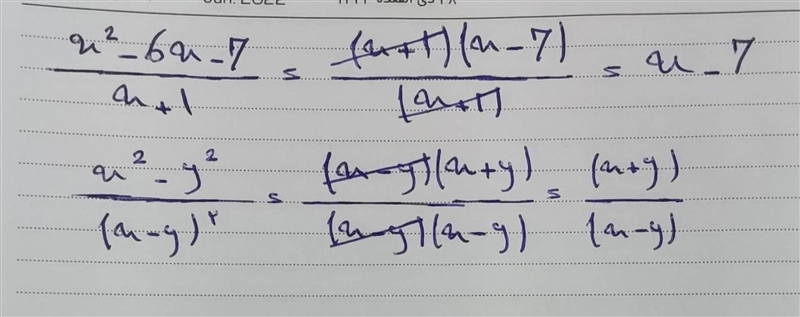 Jun. 2022
x² - 6x - 7 / x + 1 = (x+1)(x - 7) / (x+1) = x - 7
x² - y² / (x - y)۲ = (x - y)(x + y) / (x - y)(x - y) = (x + y) / (x - y)